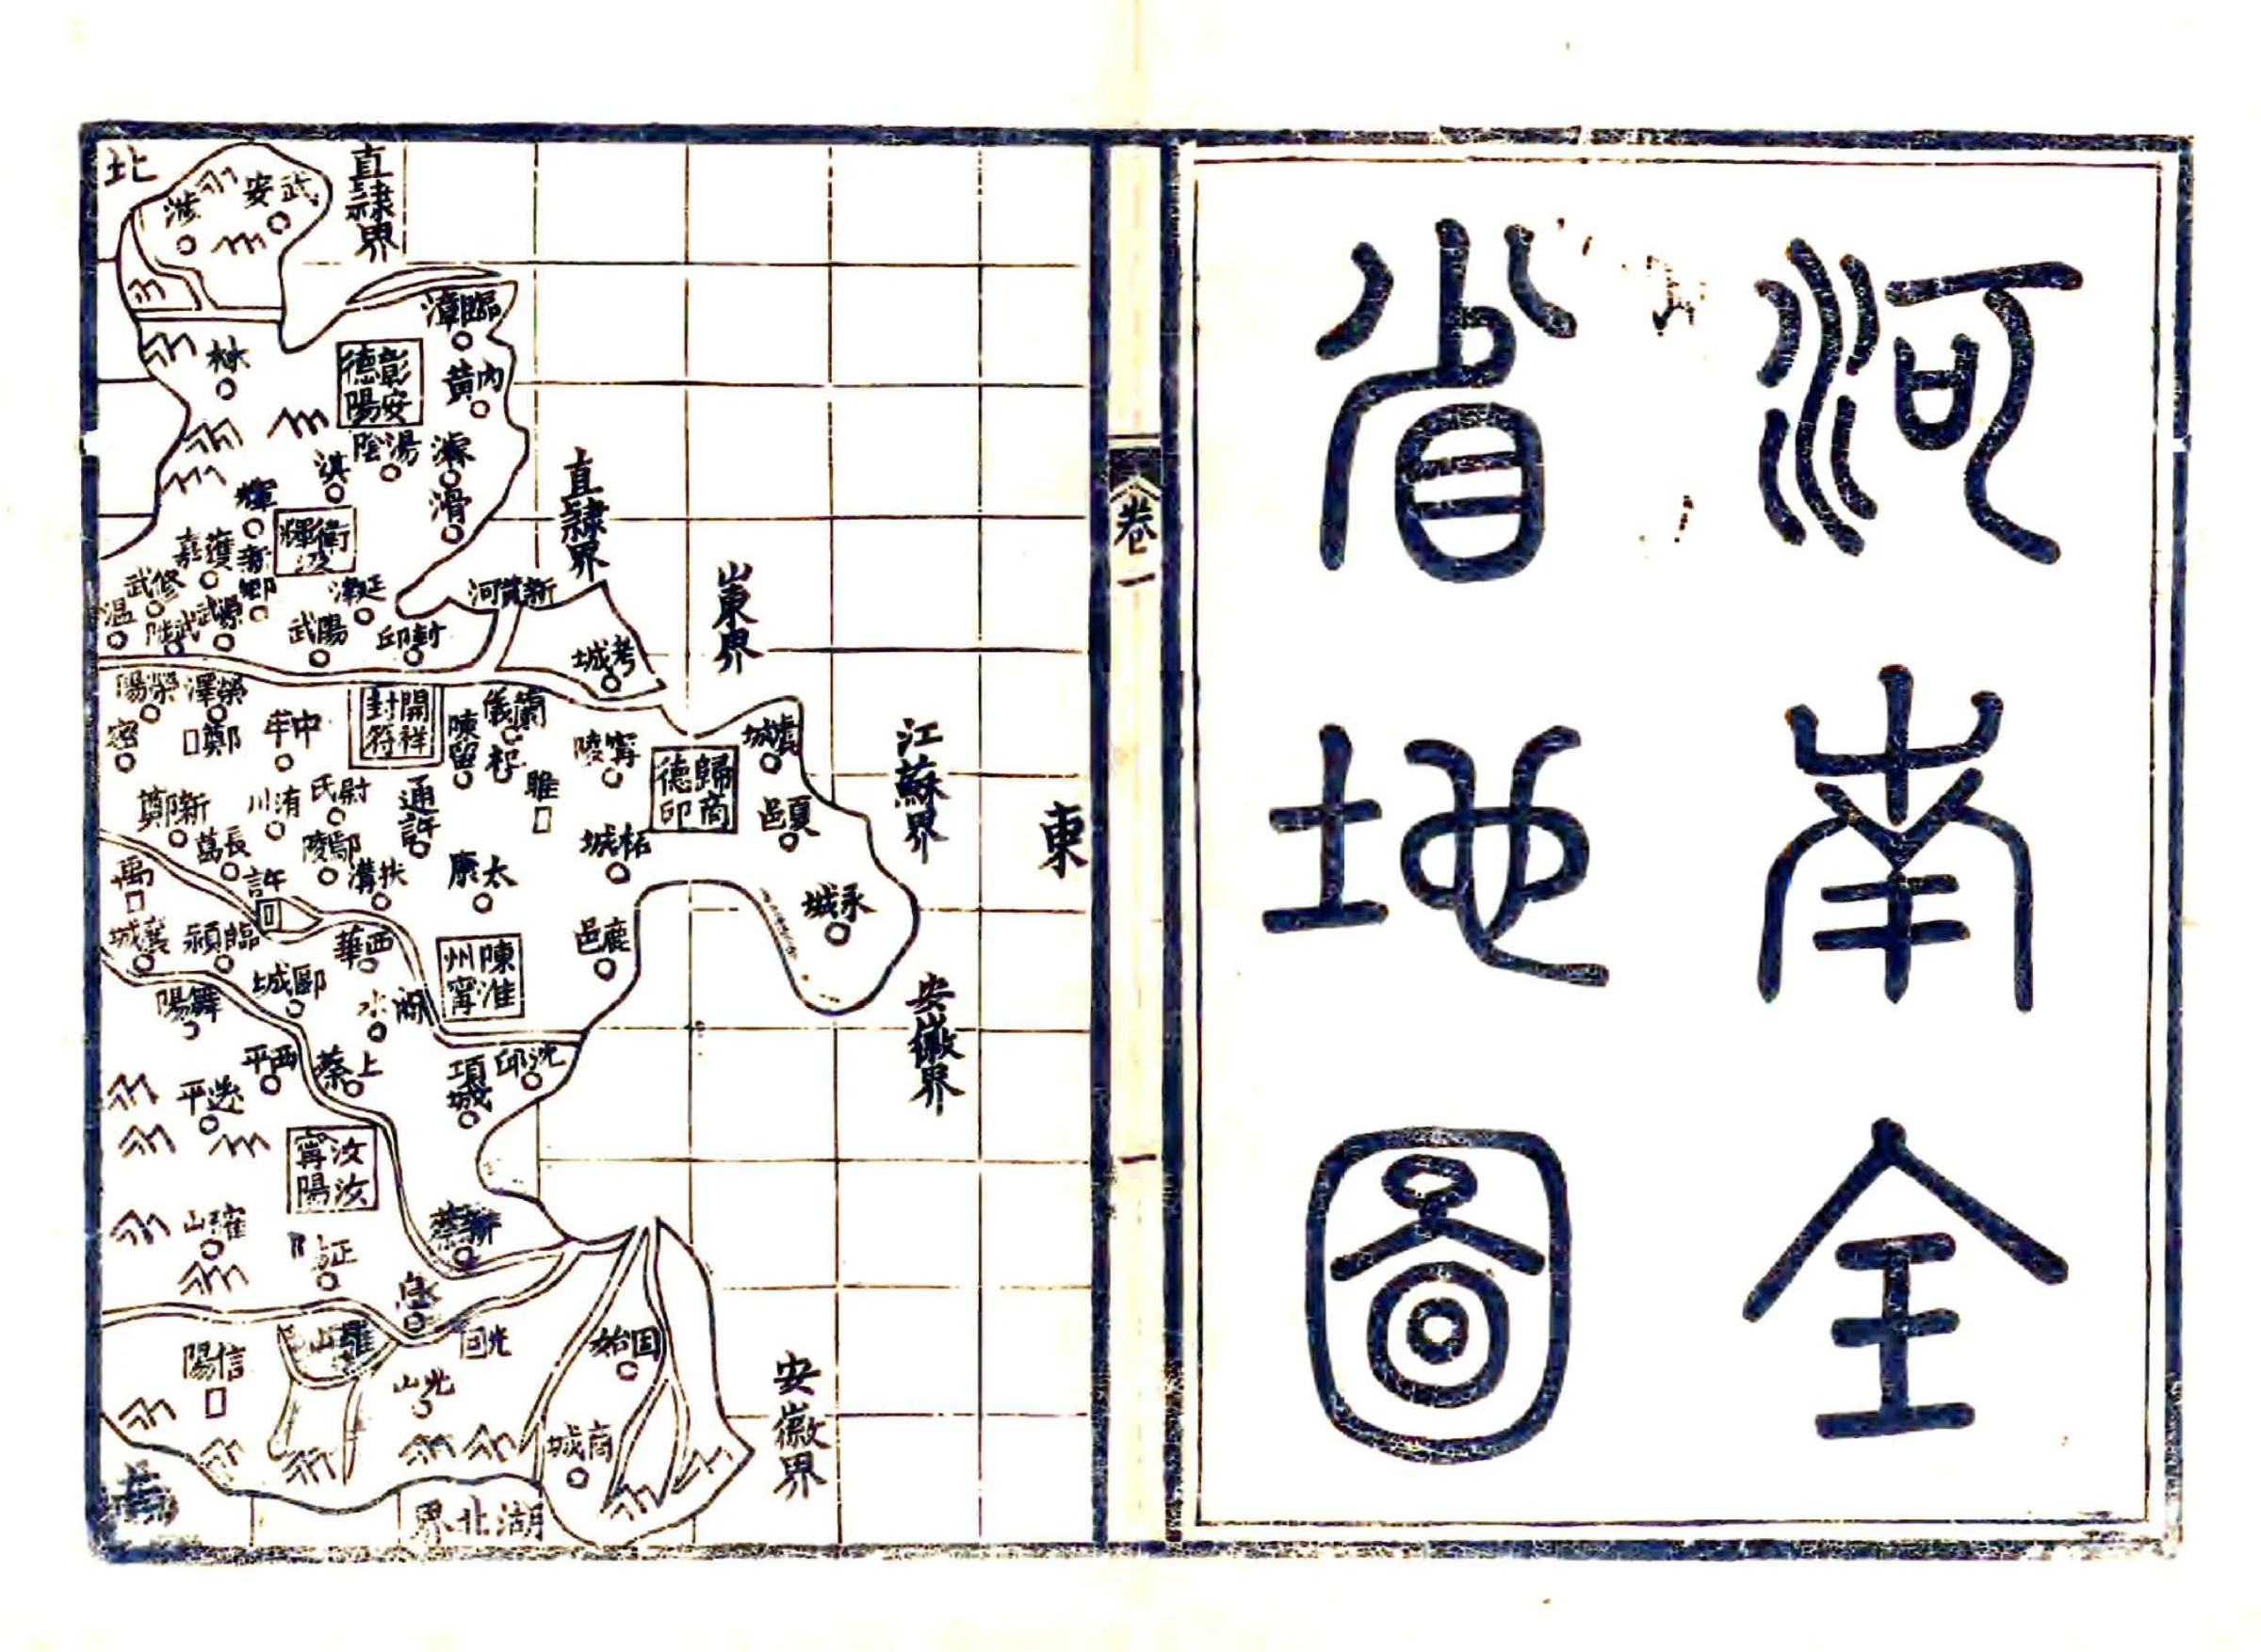 河南全
省地圖
卷一
一
北
東
南
直隸界
直隸界
山東界
江蘇界
安徽界
安徽界
湖北界
武安
涉
臨漳
林
彰德
安陽
內黃
湯陰
濬
淇
滑
輝
衛輝
汲
獲嘉
新鄉
延津
新黃河
修武
溫
武陟
原武
陽武
封邱
考城
滎陽
滎澤
鄭
中牟
開封
祥符
陳留
蘭儀
杞
寧陵
歸德
商邱
虞城
密
睢
夏邑
新鄭
洧川
尉氏
通許
長葛
鄢陵
扶溝
太康
柘城
禹
許
永城
襄城
臨潁
西華
陳州
淮甯
鹿邑
舞陽
郾城
商水
西平
上蔡
項城
沈邱
遂平
汝甯
汝陽
確山
正陽
新蔡
息
信陽
羅山
光
光山
固始
商城